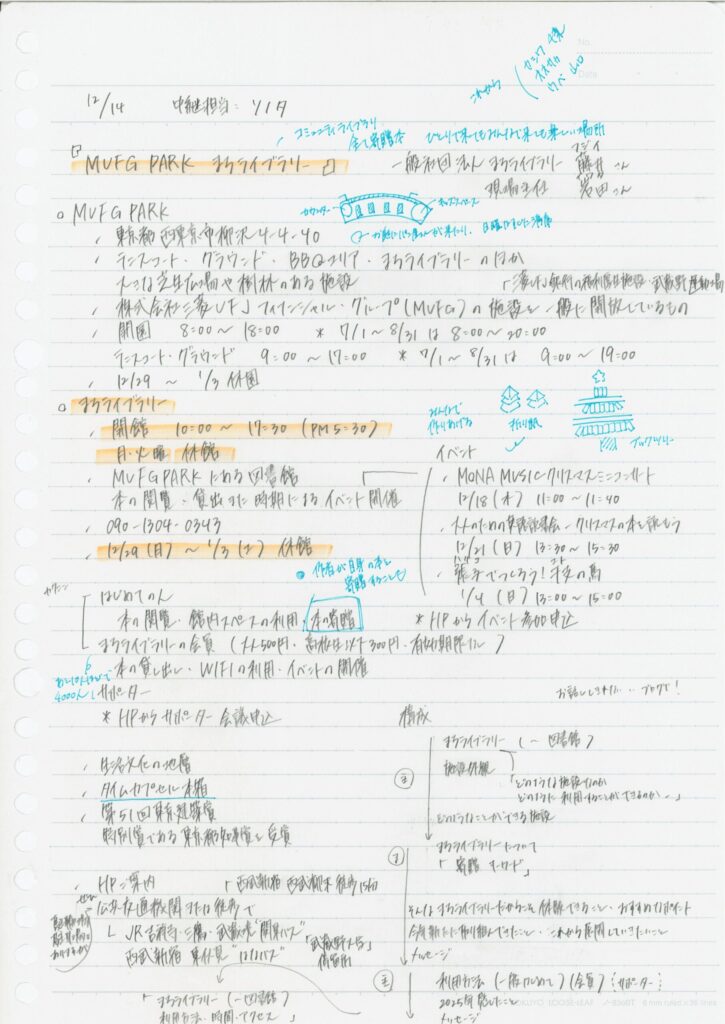 12/14 中継担当:ソノタ
コミュニティライブラリ
全て寄贈本 ひとりで来てもみんなで来ても楽しい場所
「MUFG PARK まちライブラリー」 一般社団法人 まちライブラリー 藤井さん
フジイ
現場主任 岩田さん
○ MUFG PARK
カウンター キッズスペース
、東京都西東京市柳沢4-4-40
、テニスコート・グラウンド・BBQエリア・まちライブラリーのほか
大きな芝生広場や樹林のある施設
「三菱UFJ銀行の福利厚生施設・武蔵野運動場
、株式会社三菱UFJフィナンシャル・グループ(MUFG)の施設を一般に開放しているもの
、開園 8:00〜18:00 * 7/1〜8/31は8:00〜20:00
テニスコート・グラウンド 9:00〜17:00 * 7/1〜8/31は 9:00〜19:00
、12/29 〜 1/3 休園
○ まちライブラリー
、開館 10:00〜17:30 (PM5:30)
月・火曜 休館
、MUFG PARKにある図書館
本の閲覧・貸出また時期によるイベント開催
、090-1304-0343
、12/29(月)〜1/3(土) 休館
みんなで
作りあげる
折り紙
ブックツリー
イベント
、MONA MUSICクリスマスミニコンサート
12/18(木) 11:00〜11:40
、大人のための英語読書会-クリスマスの本を読もう
12/21(日) 13:30〜15:30
、張子でつくろう!干支の馬
1/4(日) 13:00〜15:00
*HPからイベント参加申込
作者が自身の本を
寄贈することも
はじめての人
本の閲覧・館内スペースの利用・本の寄贈
まちライブラリーの会員(大人500円・高校生以下300円・有効期限なし)
本の貸し出し・WIFIの利用・イベントの開催
4000人
、サポーター
*HPからサポーター会議申込
お話ししきれない…ブログで!
、生活文化の地層
、タイムカプセル本箱
、第51回東京建築賞
特別賞である東京都知事賞を受賞
、HPご案内 「西武新宿 西武柳沢 徒歩15分
ぜひ
公共交通機関または徒歩で
└ JR吉祥寺・三鷹・武蔵境"関東バス"
西武新宿 東伏見"はなバス"
「武蔵野大学」
停留所
「まちライブラリー(一図書館)
利用方法・時間・アクセス」
構成
まちライブラリー(一図書館)
施設外観
「どのような施設なのか
どのように利用することができるのか…」
どのようなことができる施設
まちライブラリーについて
「寄贈 キーワード」
そんなまちライブラリーだからこそ体験できること・おすすめポイント
今年新たに取り組んできたこと・これから展開していきたいこと
メッセージ
利用方法(一般はじめて)(会員)(サポーター
2025年 感じたこと
メッセージ